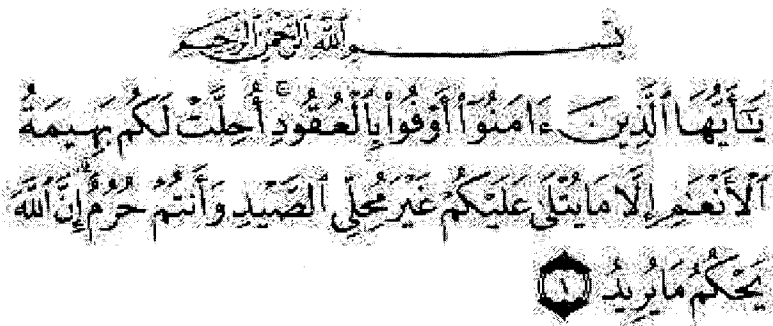 بِسْمِ ٱللَّهِ ٱلرَّحْمَٰنِ ٱلرَّحِيمِ
يَٰٓأَيُّهَا ٱلَّذِينَ ءَامَنُوٓا۟ أَوْفُوا۟ بِٱلْعُقُودِ ۚ أُحِلَّتْ لَكُم بَهِيمَةُ
ٱلْأَنْعَٰمِ إِلَّا مَا يُتْلَىٰ عَلَيْكُمْ غَيْرَ مُحِلِّى ٱلصَّيْدِ وَأَنتُمْ حُرُمٌ ۗ إِنَّ ٱللَّهَ
يَحْكُمُ مَا يُرِيدُ ١